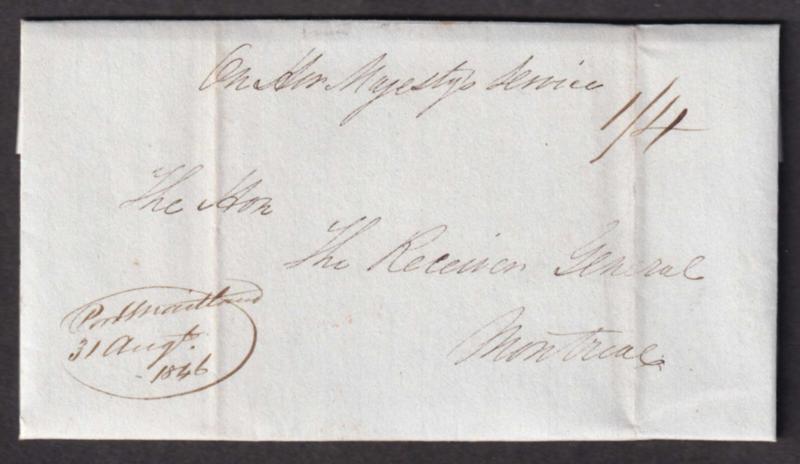 On Her Majesty's Service
1/4
The Hon
The Receiver General
Montreal
Port Maitland
31 Augt.
1846